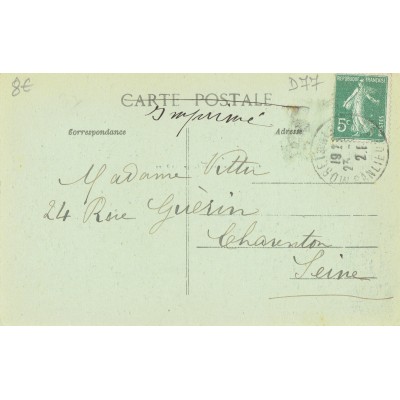 8€
D77
CARTE POSTALE
Imprimé
Correspondance
Adresse
RÉPUBLIQUE FRANÇAISE
5c
POSTES
Madame Vittu
24 Rue Guérin
Charenton
Seine